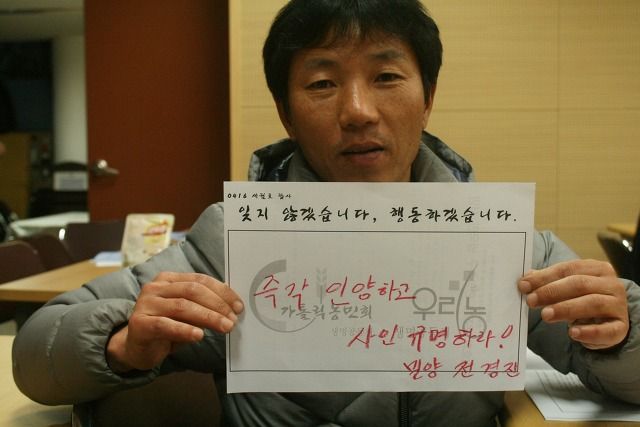 0416 세월호 참사
잊지 않겠습니다, 행동하겠습니다.
즉각 인양하고
가톨릭농민회
우리농
사인 규명하라!
밀양 전경진